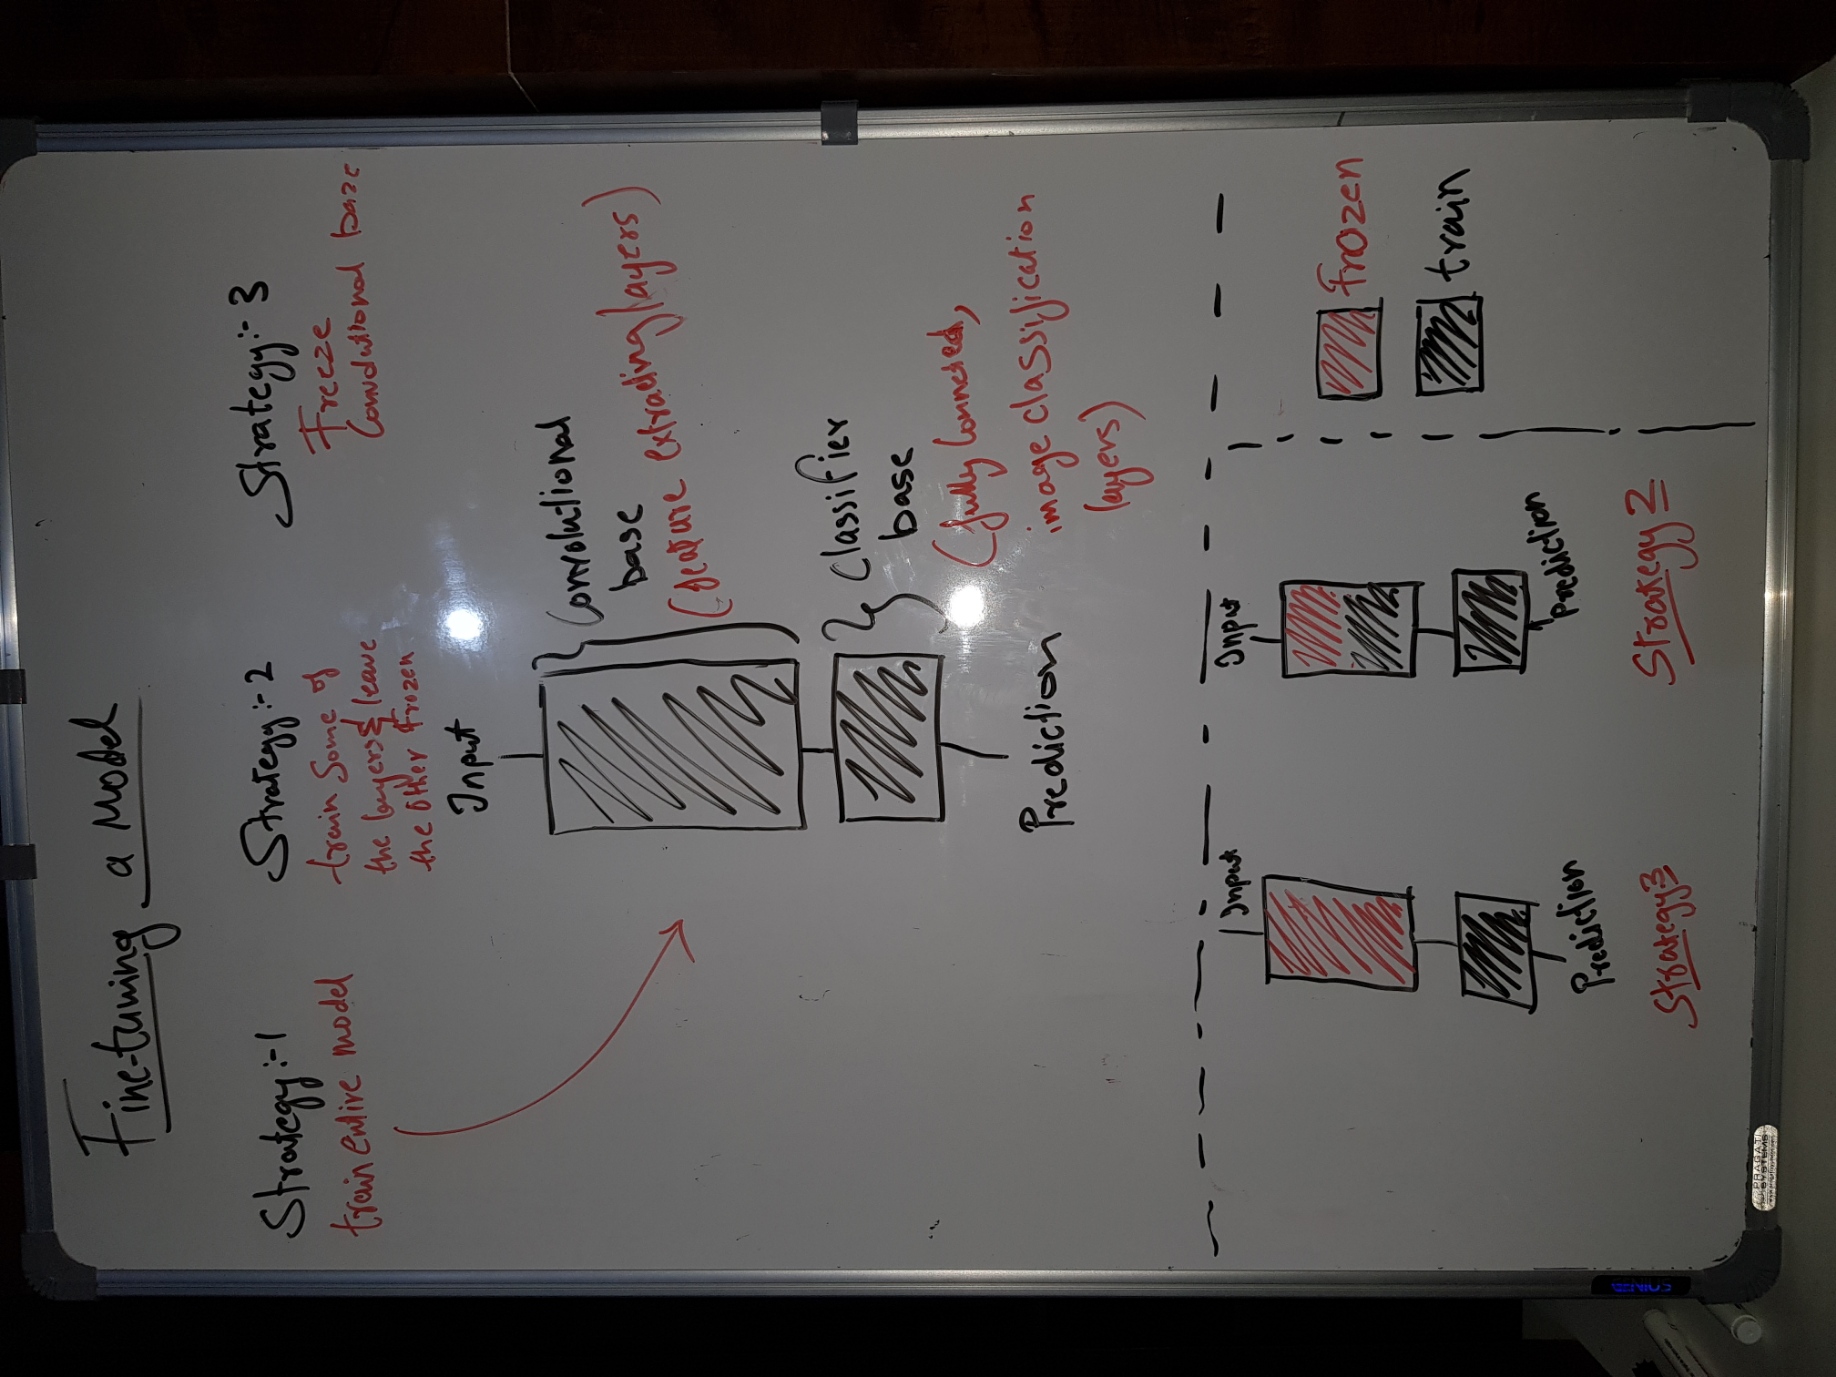 Fine-tuning a Model
Strategy:-1
train entire model
Strategy:-2
train Some of
the layers & leave
the other frozen
Strategy:- 3
Freeze
Convolutional base
Input
Convolutional
base
(feature extracting layers)
Classifier
base
(fully Connected,
image classification
layers)
Prediction
Input
Prediction
Strategy3
Input
Prediction
Strategy 2
Frozen
train
PRAGATI
SYSTEMS